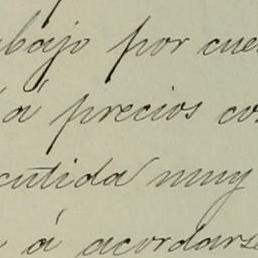 abajo por cue
á á precios co
cutida muy
á acordarse